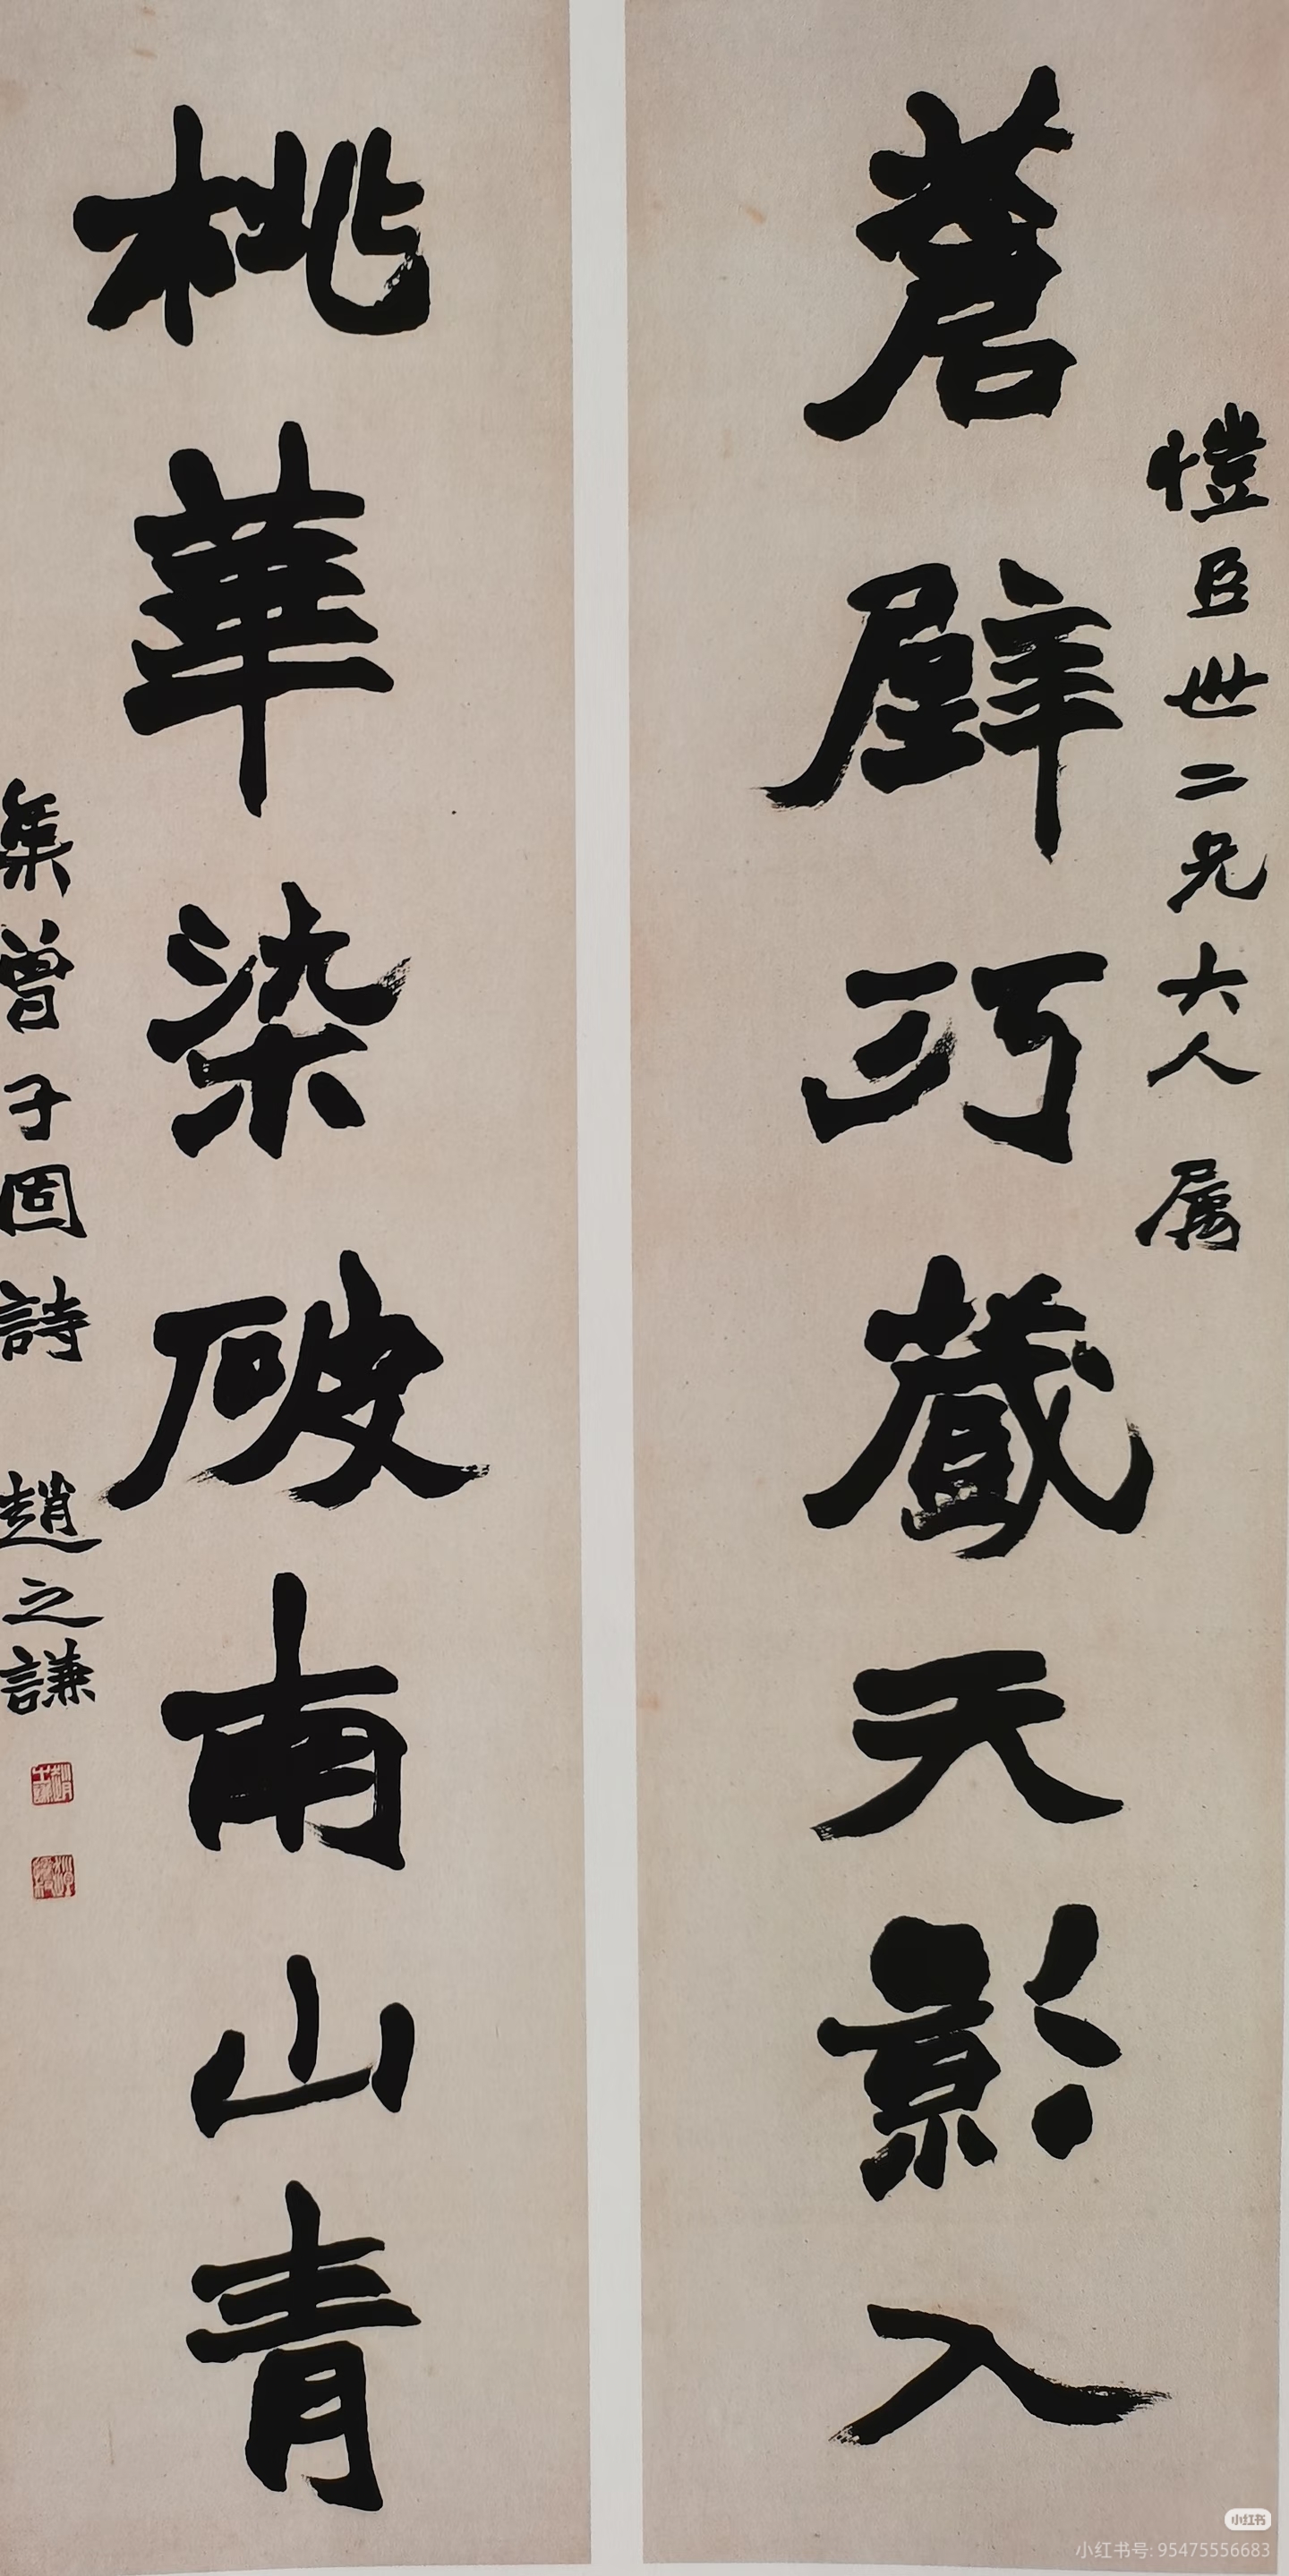 愷臣世二兄大人屬
蒼壁巧藏天影入
桃華染破南山青
集曾子固詩 趙之謙
小红书
小红书号: 95475556683